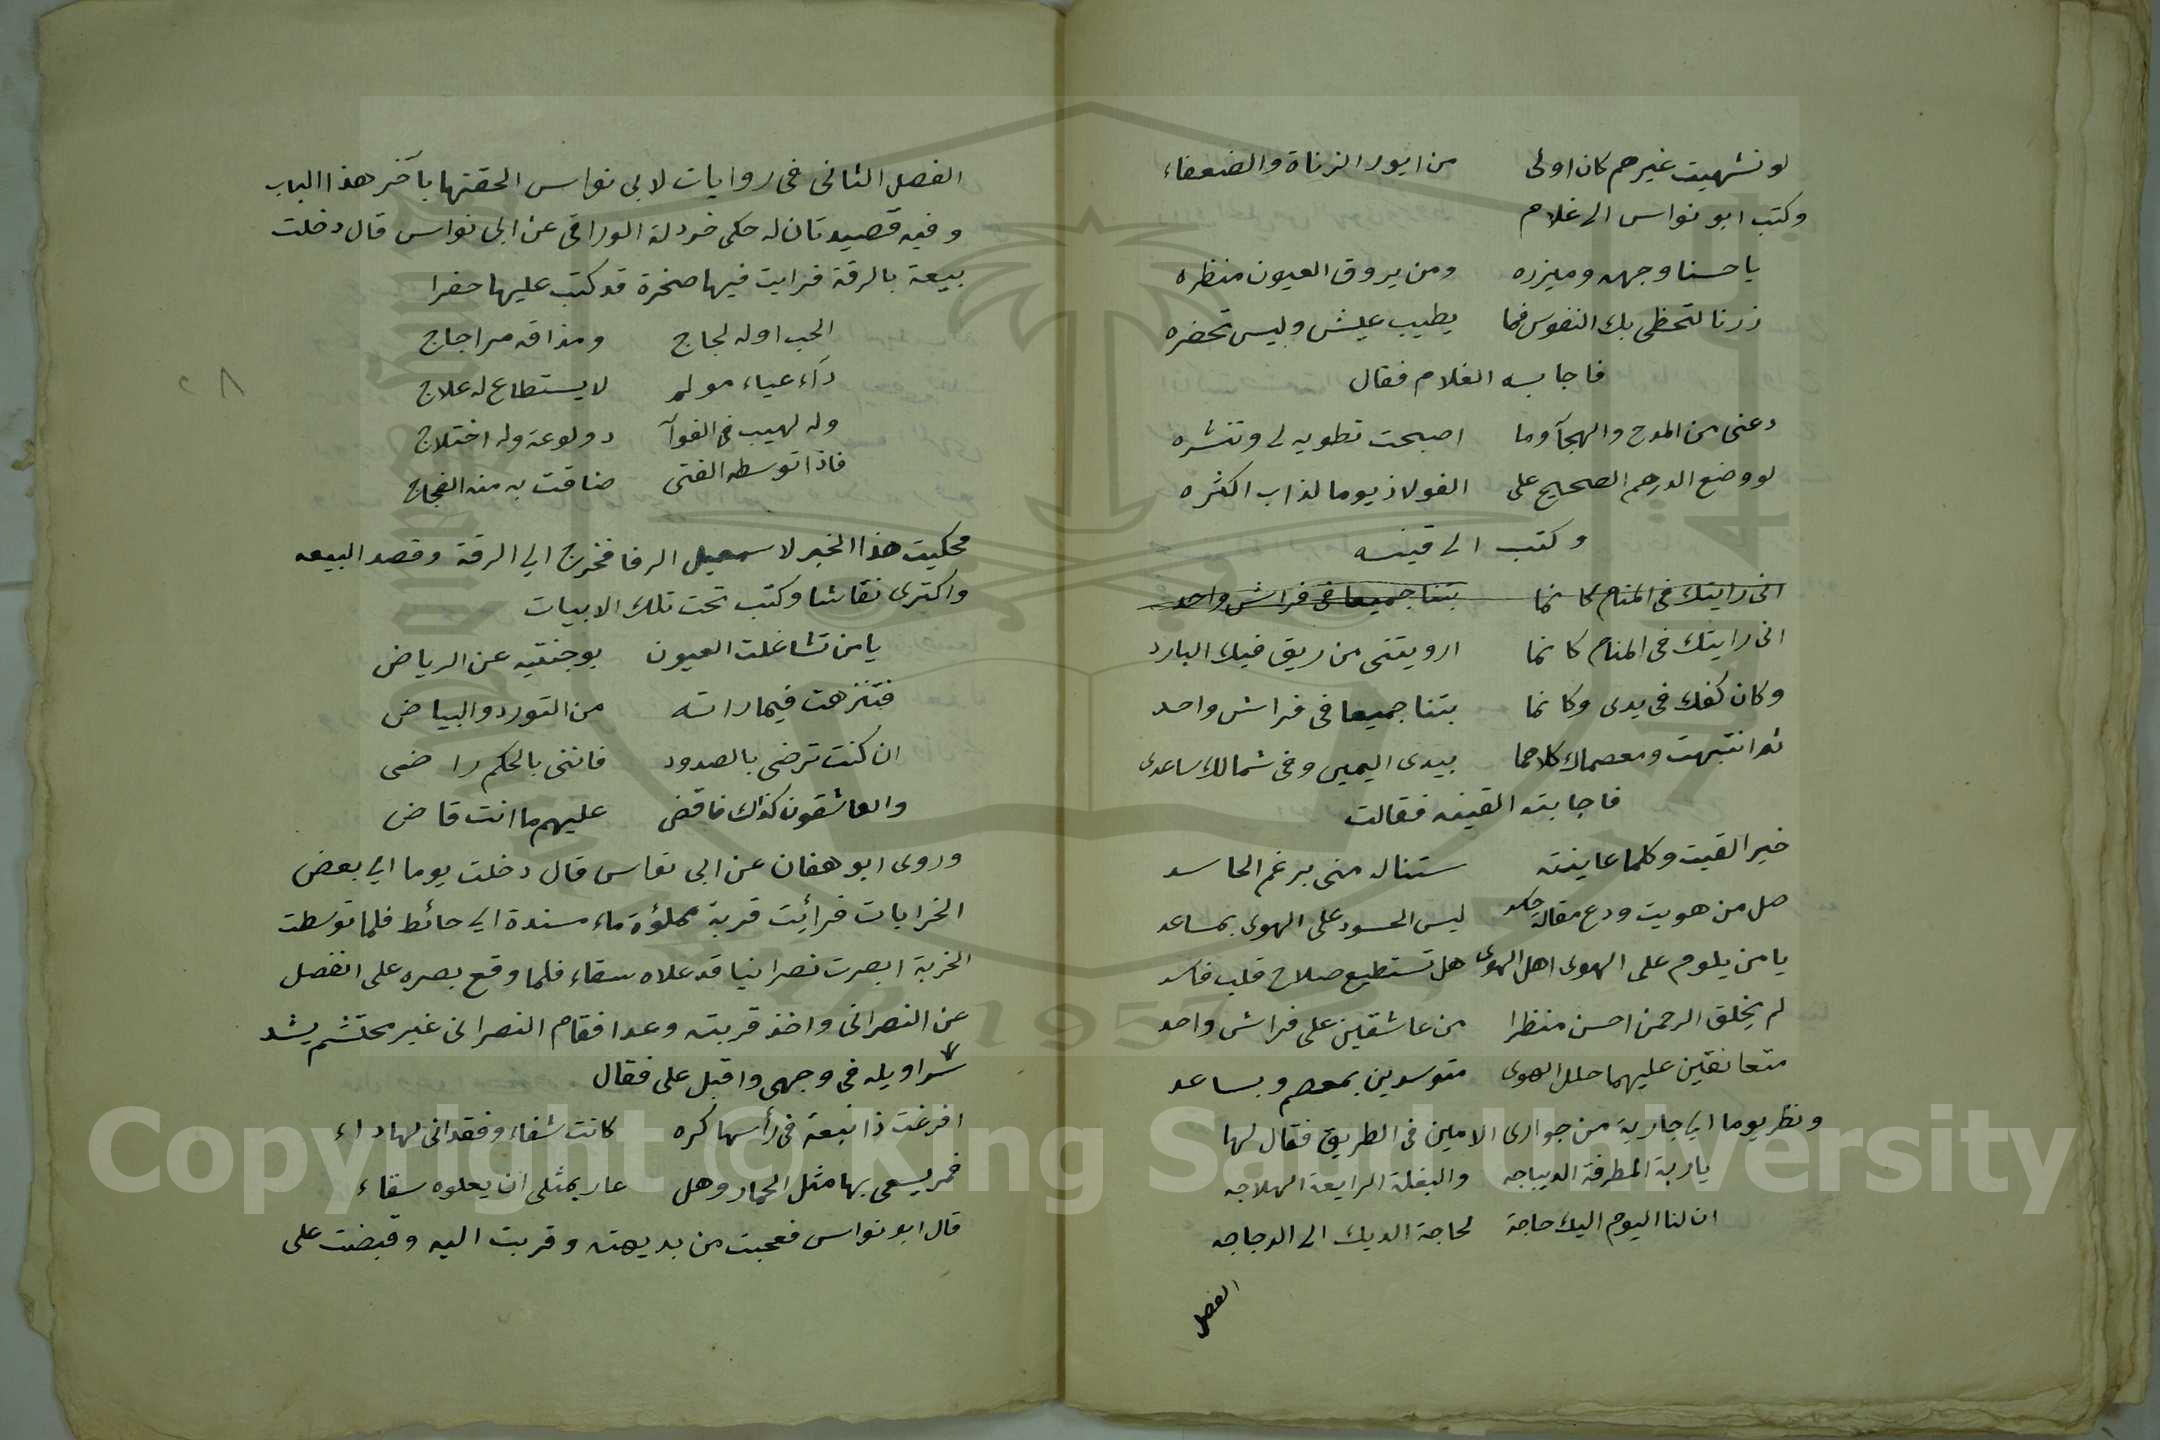 لو تشهيت غيرهم كان اولى من ايور الزناة والضعفاء
وكتب ابو نواس الى غلام
يا حسنا وجهه وميزره ومن يروق العيون منظره
زرنا لتحظى بك النفوس فما يطيب عيش وليس تحضره
فاجابه الغلام فقال
دعنى من المدح والهجآ وما اصبحت تطويه لى وتنشره
لو وضع الدرهم الصحيح على الفولاذ يوما لذاب اكثره
وكتب الى قينه
انى رايتك فى المنام كانما بتنا جميعا فى فراش واحد
انى رايتك فى المنام كانما ارويتنى من ريق فيك البارد
وكان كفك فى يدى وكانما بتنا جميعا فى فراش واحد
ثم انتبهت ومعصماك كلاهما بيدى اليمين وفى شمالك ساعدى
فاجابته القينه فقالت
خيرا لقيت وكلما عاينته ستناله منى برغم الحاسد
صل من هويت ودع مقالة حاسد ليس الحسود على الهوى بمساعد
يا من يلوم على الهوى اهل الهوى هل تستطيع صلاح قلب فاسد
لم يخلق الرحمن احسن منظرا من عاشقين على فراش واحد
متعانقين عليهما حلل الهوى متوسدين بمعصم وبساعد
ونظر يوما الي جارية من جوارى الامين فى الطريق فقال لها
يا ربة المطرفة الديباجه والبغلة الرايعة الهلاجه
ان لنا اليوم اليك حاجة لحاجة الديك الى الدجاجه
الفصل
الفصل الثانى فى روايات لابى نواس الحقتها بآخر هذا الباب
وفيه قصيدتان له حكى خردلة الوراق عن ابى نواس قال دخلت
بيعة بالرقة فرايت فيها صخرة قد كتب عليها حفرا
الحب اوله لجاج ومذاقه مر اجاج
دآء عياء مولم لا يستطاع له علاج
وله لهيب فى الفوآ د ولوعة وله اختلاج
فاذا توسطه الفتى ضاقت به منه الفجاج
فحكيت هذا الخبر لاسمعيل الرفا فخرج الي الرقة وقصد البيعه
واكترى نقاشا وكتب تحت تلك الابيات
يا من تشاغلت العيون بوجنتيه عن الرياض
فتنزهت فيما راته من التورد والبياض
ان كنت ترضى بالصدود فاننى بالحكم راضى
والعاشقون كذاك فاقض عليهم ما انت قاض
وروى ابو هفان عن ابى نواس قال دخلت يوما الي بعض
الخرابات فرأيت قربة مملؤة ماء مسندة الي حائط فلما توسطت
الخربة ابصرت نصرانيا قد علاه سقاء فلما وقع بصره على انفصل
عن النصرانى واخذ قربته وعدا فقام النصرانى غير محتشم يشد
سراويله فى وجهى واقبل على فقال
افرغت ذا نبعة فى رأسها كره كانت شفاء وفقدانى لها داء
قال ابو نواس فعجبت من بديهته وقربت اليه وقبضت على
٢٨
Copyright © King Saud University
1957